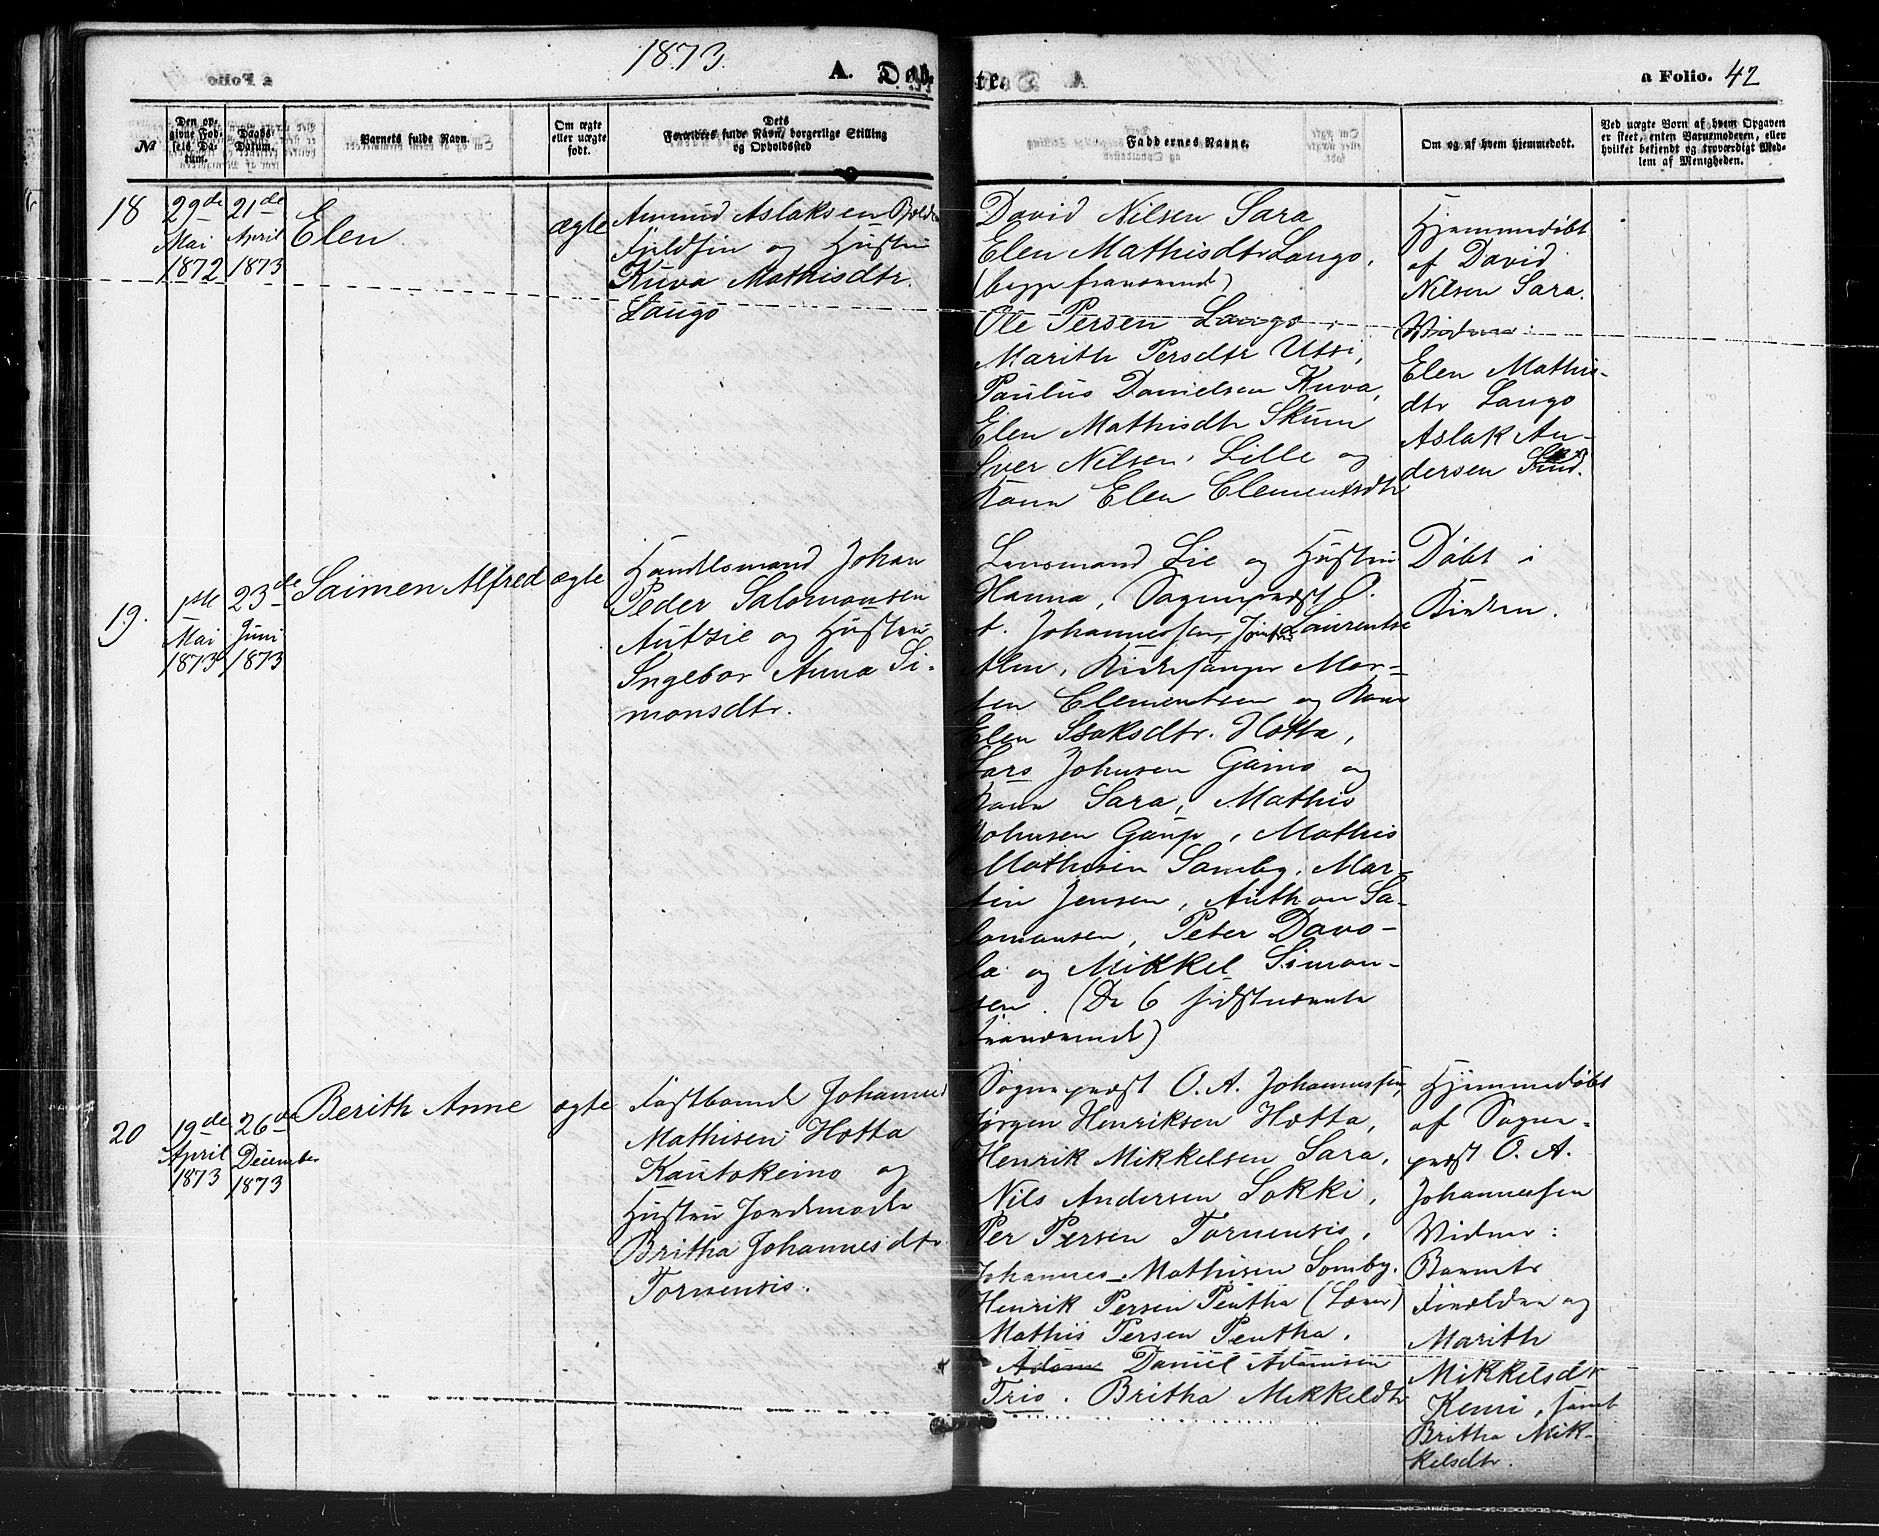 1873.
A. Døb
te.
a Folio. 42
No
Den opgivne Fødsels Datum.
Daabs-Datum.
Barnets fulde Navn.
Om ægte eller uægte født.
Dets Forældres fulde Navn, borgerlige Stilling og Opholdssted
Faddernes Navne.
Om og af hvem hjemmedøbt.
Ved uægte Børn af hvem Opgaven er skeet, enten Barnemoderen, eller hvilket bekjendt og troværdigt Medlem af Menigheden.
18
29de
Mai
1872
21de
April
1873
Elen
ægte
Amund Aslaksen
Fjeldfin og Hustru
Kuva Mathisdtr.
Lango
David Nilsen Sara
Elen Mathisdtr Lango,
(begge fraværende)
Ole Persen Lango,
Marith Persdtr Utsi,
Paulus Danielsen Kuva,
Elen Mathisdtr Skum
Iver Nilsen Lille og
Kone Elen Clementsdtr
Hjemmedøbt
af David
Nilsen Sara.
Vidner:
Elen Mathis-
dtr Lango
Aslak An-
dersen
19.
1ste
Mai
1873
23de
Juni
1873
Saimen Alfred
ægte
Handelsmand Johan
Peder Salomonsen
Autzie og Hustru
Ingebor Anna Si-
monsdtr.
Lensmand Lie og Hustru
Hanna, Sognepræst O.
A. Johannessen, Laurentse
Kirkesanger Mor-
ten Clementsen og Kone
Elen Isaksdtr. Hætta,
Lars Johnsen Gaino og
Kone Sara, Mathis
Johnsen Gaup, Mathis
Mathisen Somby, Mar-
tin Jensen, Anthon Sa-
lomonsen, Peter Davo-
la og Mikkel Simon-
sen. (De 6 sidstnævnte
Fraværende)
Døbt i
Kirken.
20
19de
April
1873
26de
December
1873
Berith Anne
ægte
Fastboende Johannes
Mathisen Hætta
Kautokeino og
Hustru Jordemoder
Britha Johannesdtr
Tornensis.
Sognepræst O. A. Johannessen,
Jørgen Henriksen Hætta,
Henrik Mikkelsen Sara,
Nils Andersen Lokki,
Per Persen Tornensis,
Johannes Mathisen Somby.
Henrik Persen Pentha (Lærer)
Mathis Persen Pentha.
Adam Daniel Adamsen
Trio. Britha Mikkeldtr
Hjemmedøbt
af Sogne-
præst O. A.
Johannessen
Vidner:
Barnets
Forældre og
Marith
Mikkelsdtr
Kemi, samt
Britha Mik-
kelsdtr.